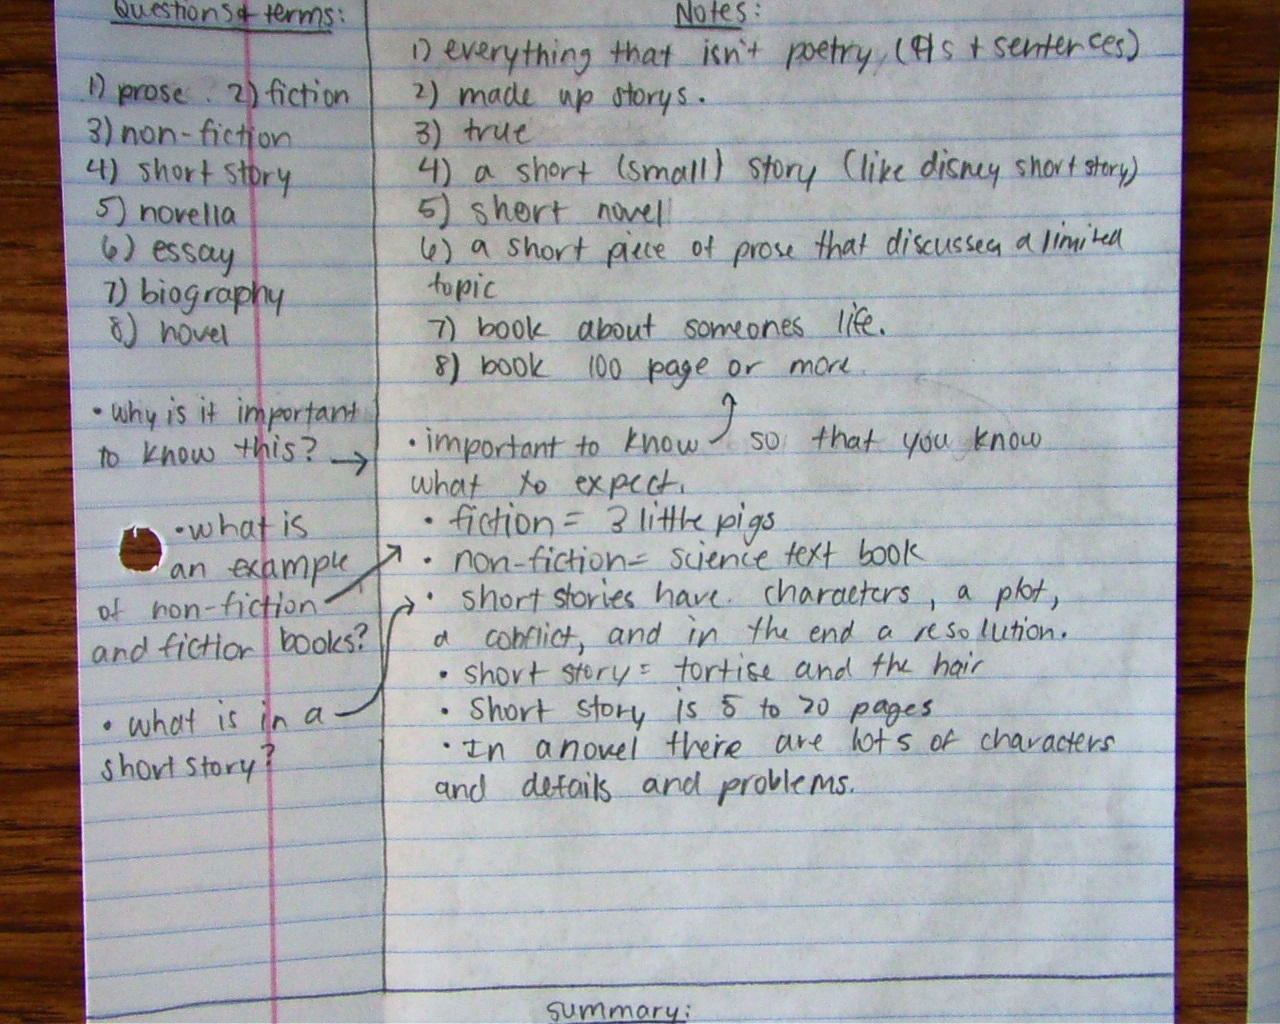 Questions & terms:
1) prose. 2) fiction
3) non-fiction
4) short story
5) novella
6) essay
7) biography
8) novel
• why is it important
to know this? →
• what is
an example
of non-fiction
and fiction books?
• what is in a
short story?
Notes:
1) everything that isn't poetry, (¶s + sentences)
2) made up storys.
3) true
4) a short (small) story (like disney short story)
5) short novel
6) a short piece of prose that discusses a limited
topic
7) book about someones life.
8) book 100 page or more
• important to know so that you know
what to expect.
• fiction = 3 little pigs
• non-fiction = science text book
• short stories have characters, a plot,
a conflict, and in the end a resolution.
• short story = tortise and the hair
• Short story is 5 to 20 pages
• In a novel there are lots of characters
and details and problems.
summary: